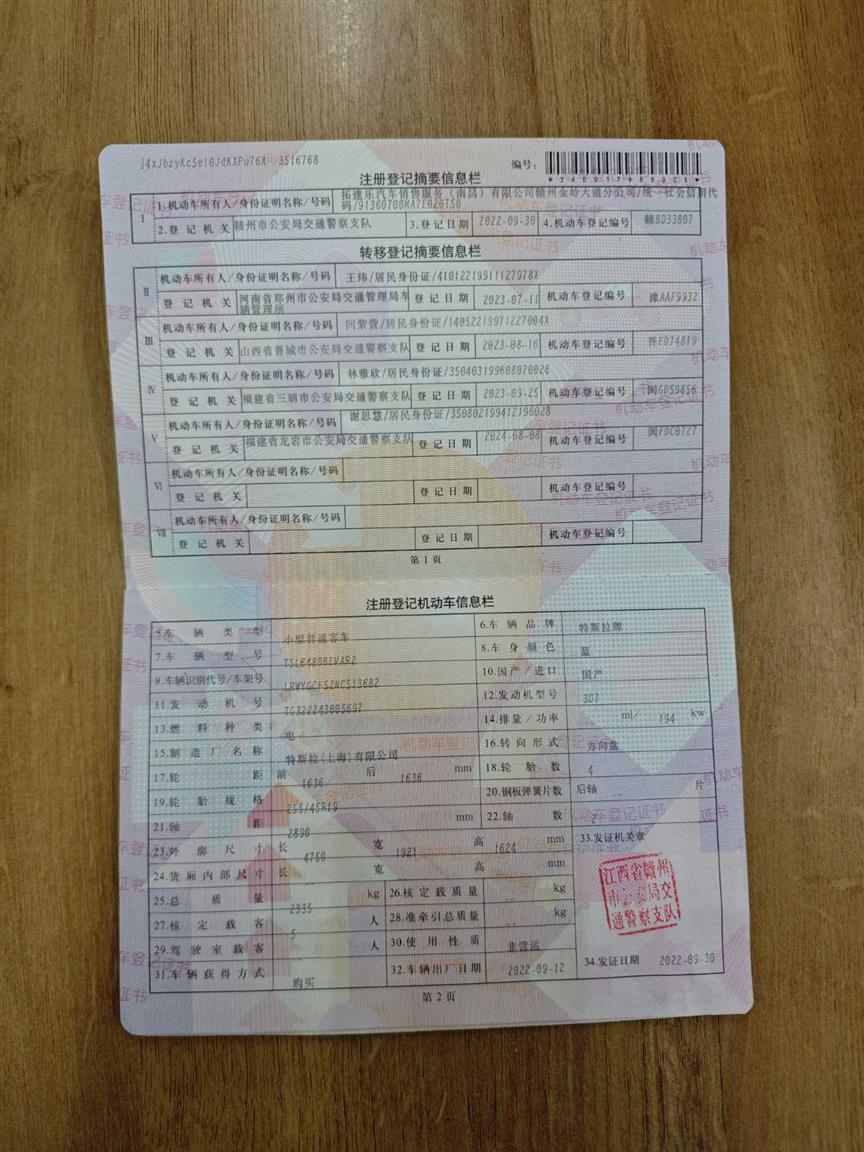 J4xJbzyKcSel0JdKXPu76A 3516768
编号：
注册登记摘要信息栏
I
1.机动车所有人/身份证明名称/号码 拓速乐汽车销售服务（南昌）有限公司赣州金岭大道分公司/统一社会信用代码/
2.登记机关 赣州市公安局交通警察支队 3.登记日期 2022-09-30 4.机动车登记编号 赣BD33807
转移登记摘要信息栏
II
机动车所有人/身份证明名称/号码 王玮/居民身份证/41012219911127978X
登记机关 河南省郑州市公安局交通管理局车辆管理所 登记日期 2023-07-11 机动车登记编号 豫AAF9932
III
机动车所有人/身份证明名称/号码 闫紫萱/居民身份证/14052219971227004X
登记机关 山西省晋城市公安局交通警察支队 登记日期 2023-08-16 机动车登记编号 晋ED74819
IV
机动车所有人/身份证明名称/号码 林雅欣/居民身份证/350403199608070026
登记机关 福建省三明市公安局交通警察支队 登记日期 2023-09-25 机动车登记编号 闽GD59856
V
机动车所有人/身份证明名称/号码 谢思慧/居民身份证/350802199412196028
登记机关 福建省龙岩市公安局交通警察支队 登记日期 2024-08-08 机动车登记编号 闽FDC0727
VI
机动车所有人/身份证明名称/号码
登记机关 登记日期 机动车登记编号
VII
机动车所有人/身份证明名称/号码
登记机关 登记日期 机动车登记编号
第1页
注册登记机动车信息栏
5.车辆类型 小型普通客车 6.车辆品牌 特斯拉牌
7.车辆型号 TSL6480BEVAR2 8.车身颜色 蓝
9.车辆识别代号/车架号 LRWYGCFS2NC513682 10.国产/进口 国产
11.发动机号 TG322243005697 12.发动机型号 3D7
13.燃料种类 电 14.排量/功率 ml/ 194 kw
15.制造厂名称 特斯拉(上海)有限公司 16.转向形式 方向盘
17.轮距 前 1636 后 1636 mm 18.轮胎数 4
19.轮胎规格 255/45R19 20.钢板弹簧片数 后轴 -- 片
21.轴距 2890 mm 22.轴数 2
23.外廓尺寸 长 4750 宽 1921 高 1624 mm 33.发证机关章
24.货厢内部尺寸 长 -- 宽 -- 高 -- mm
25.总质量 2335 kg 26.核定载质量 -- kg
27.核定载客 5 人 28.准牵引总质量 -- kg
29.驾驶室载客 -- 人 30.使用性质 非营运
31.车辆获得方式 购买 32.车辆出厂日期 2022-09-12 34.发证日期 2022-09-30
江西省赣州
市公安局交
通警察支队
第2页